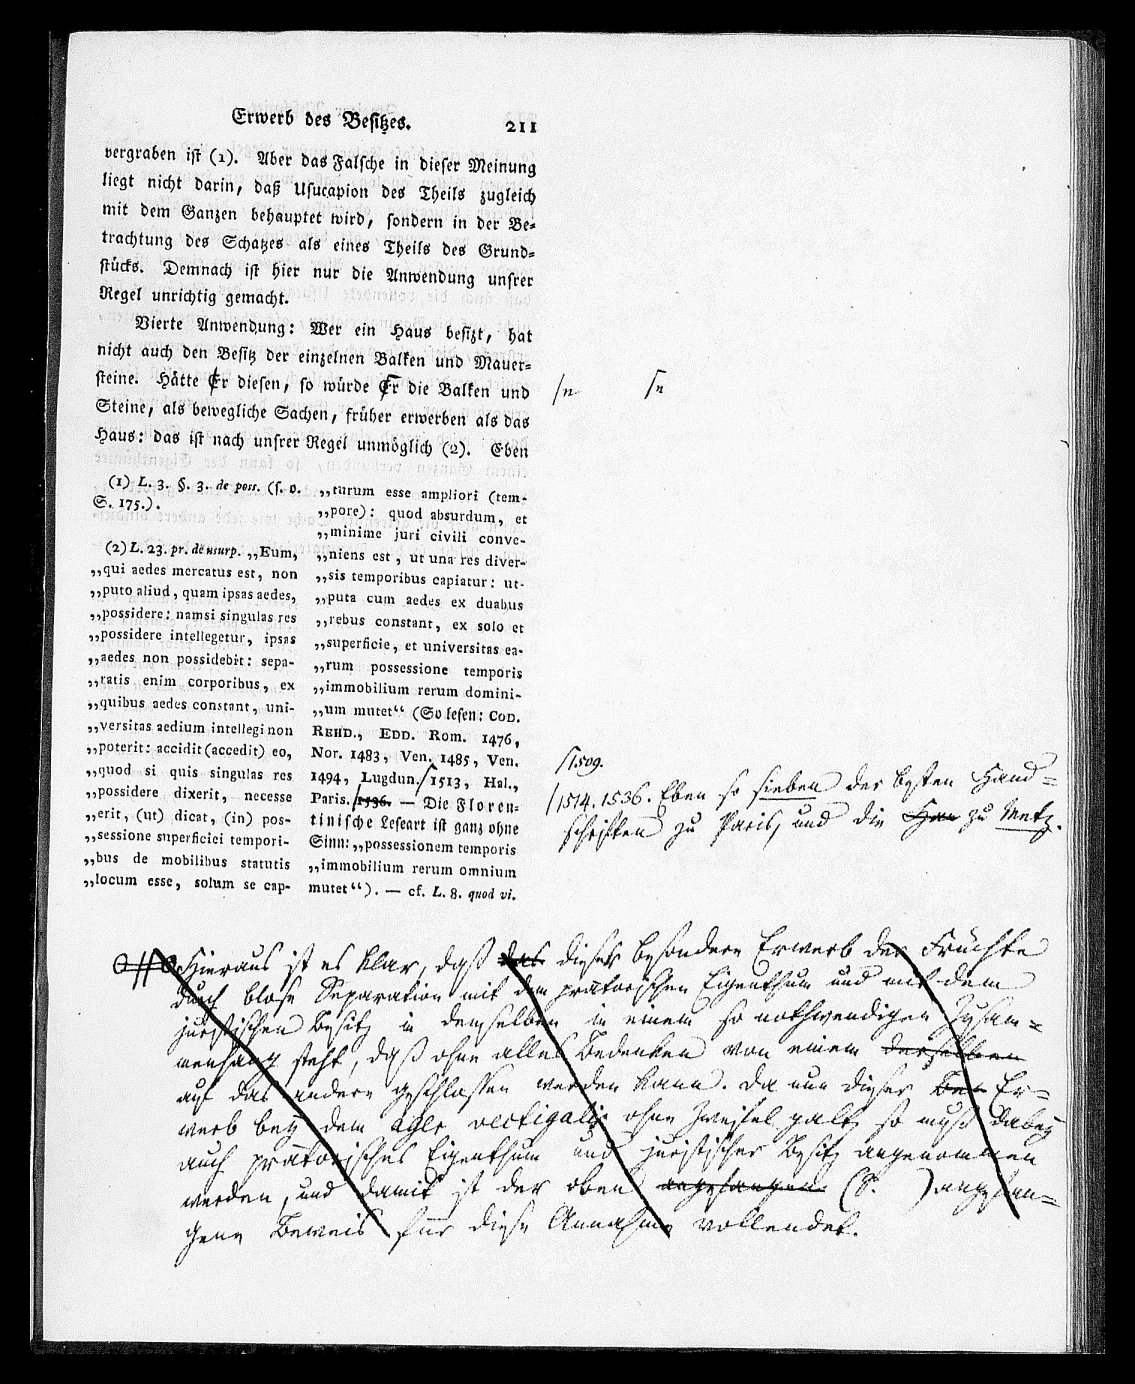 Erwerb des Besitzes. 211
vergraben ist (1). Aber das Falsche in dieser Meinung
liegt nicht darin, daß Usucapion des Theils zugleich
mit dem Ganzen behauptet wird, sondern in der Be-
trachtung des Schatzes als eines Theils des Grund-
stücks. Demnach ist hier nur die Anwendung unsrer
Regel unrichtig gemacht.
Vierte Anwendung: Wer ein Haus besitzt, hat
nicht auch den Besitz der einzelnen Balken und Mauer-
steine. Hätte Er diesen, so würde Er die Balken und
Steine, als bewegliche Sachen, früher erwerben als das
Haus: das ist nach unsrer Regel unmöglich (2). Eben
(1) L. 3. §. 3. de poss. (s. o.
S. 175.).
(2) L. 23. pr. de usurp. „Eum,
„qui aedes mercatus est, non
„puto aliud, quam ipsas aedes,
„possidere: nam si singulas res
„possidere intellegetur, ipsas
„aedes non possidebit: sepa-
„ratis enim corporibus, ex
„quibus aedes constant, uni-
„versitas aedium intellegi non
„poterit: accidit (accedit) eo,
„quod si quis singulas res
„possidere dixerit, necesse
„erit, (ut) dicat, (in) pos-
„sessione superficiei tempori-
„bus de mobilibus statutis
„locum esse, solum se cap-
„turum esse ampliori (tem-
„pore): quod absurdum, et
„minime juri civili conve-
„niens est, ut una res diver-
„sis temporibus capiatur: ut-
„puta cum aedes ex duabus
„rebus constant, ex solo et
„superficie, et universitas ea-
„rum possessione temporis
„immobilium rerum domini-
„um mutet“ (So lesen: COD.
REHD., EDD. Rom. 1476,
Nor. 1483, Ven. 1485, Ven.
1494, Lugdun. 1513, Hal.,
Paris. 1536. — Die Floren-
tinische Leseart ist ganz ohne
Sinn: „possessionem temporis
„immobilium rerum omnium
mutet“). — cf. L. 8. quod vi.
1509.
1514. 1536. Eben so sieben der besten Hand-
schriften zu Paris, und die Han zu Metz.
Hieraus ist es klar, daß das dieser besondere Erwerb der Früchte
durch blose Separation mit dem prätorischen Eigenthum und mit dem
juristischen Besitz in demselben in einem so nothwendigen Zusam-
menhang steht, daß ohne alles Bedenken von einem derselben
auf das andere geschlossen werden kann. Da nun dieser Bes Er-
werb bey dem ager vectigalis ohne Zweifel galt, so muß dabey
auch prätorisches Eigenthum und juristischer Besitz angenommen
werden, und damit ist der oben angefangene (S. ) angefan-
gene Beweis für diese Annahme vollendet.